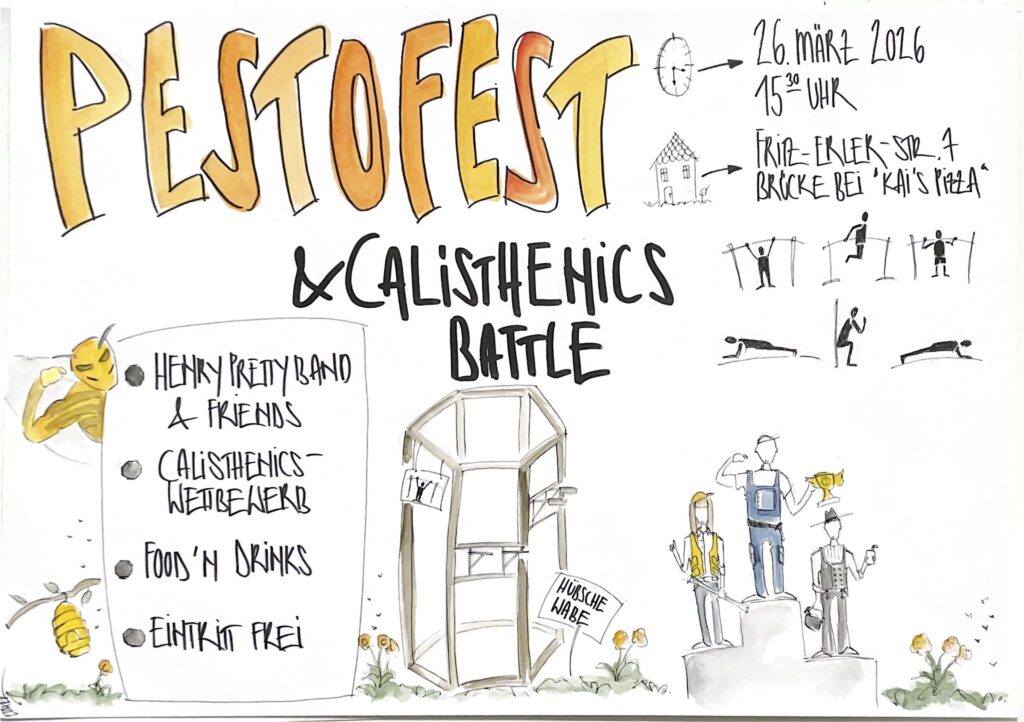 PESTOFEST
26. MÄRZ 2026
15³⁰ UHR
FRITZ-ERLER-STR. 7
BRÜCKE BEI "KAI'S PIZZA"
& CALISTHENICS
BATTLE
HENRY PRETTY BAND
& FRIENDS
CALISTHENICS-
WETTBEWERB
FOOD'N DRINKS
EINTRITT FREI
HÜBSCHE
WABE